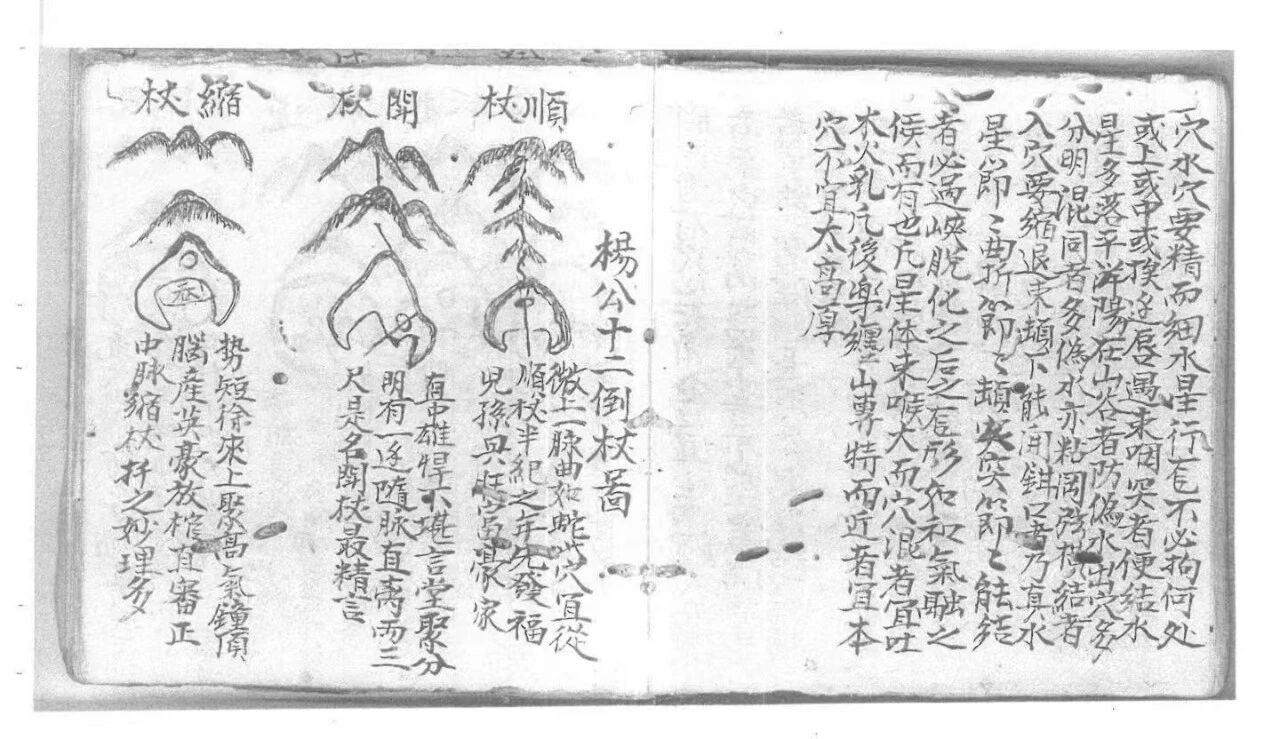 穴水穴要精而細水星行龙不必拘何处
或上或中或挨近唇遇束咽突者便结水
星多落平洋陽在山谷者防偽水出穴多
分明混同者多偽水亦粘岡弦横结者
入穴要縮退束頭下能開鉗口者乃真水
星節〻曲折節〻頭突突節〻能结
者必過峡脱化之后之龙形和和氣融之
侯而有也凡星体束喉大而穴混者宜吐
木火乳凡後樂纏山專特而近者宜本
穴不宜太高厚
楊公十二倒杖啚
順杖
微上脉曲如蛇穴宜從
順杖半紀之年先發福
児孫興旺富豪家
開杖
直中雄悍不堪言堂聚分
明有一边隨脉直离两三
尺是名開杖最精言
縮杖
势短徐來上聚高氣鐘頂
腦産英豪放棺直審正
中脉縮杖扦之妙理多